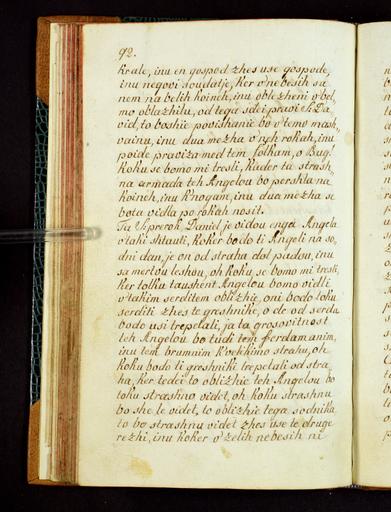 92.
krale, inu en gospod zhes use gospode,
inu negovi soudatje, ker v'nebesih sa
nem na belih koineh, inu oblezheni v'bel,
mo oblazhilu, od tega sdei pravi S: Da
vid, to boshie povishanie bo v'temo mash,
vainu, inu dua mezha v'nyh rokah, inu
poide praviza med tem folkam, o Bug!
Koku se bomo mi tresli, kader ta strash,
na armada teh Angelou bo pershla na
koineh, inu k'nogam, inu dua mezha se
bota vidla po rokah nosit.
Ta S: prerok Daniel je vidou enga Angela
v'taki shtauti, koker bodo ti Angeli na so,
dni dan, je on od straha dol padou, inu
sa mertou leshou, oh koku se bomo mi tresli,
ker tolku taushent Angelou bomo vidli
v'takim serditem oblizhie, oni bodo toku
serditi zhes te greshnike, o de od serda
bodo usi trepetali, ja ta grosovitnost
teh Angelou bo tudi tem ferdamanim,
inu tem brumnim k'velikimo strahu, oh
koku bodo ti greshniki trepetali od stra,
ha, ker tedei to oblizhie teh Angelou bo
toku strashno videt, oh koku strashnu
bo she le videt, to oblizhie tega sodnika
to bo strashnu videt zhes use te druge
rezhi, inu koker v'zelih nebesih ni